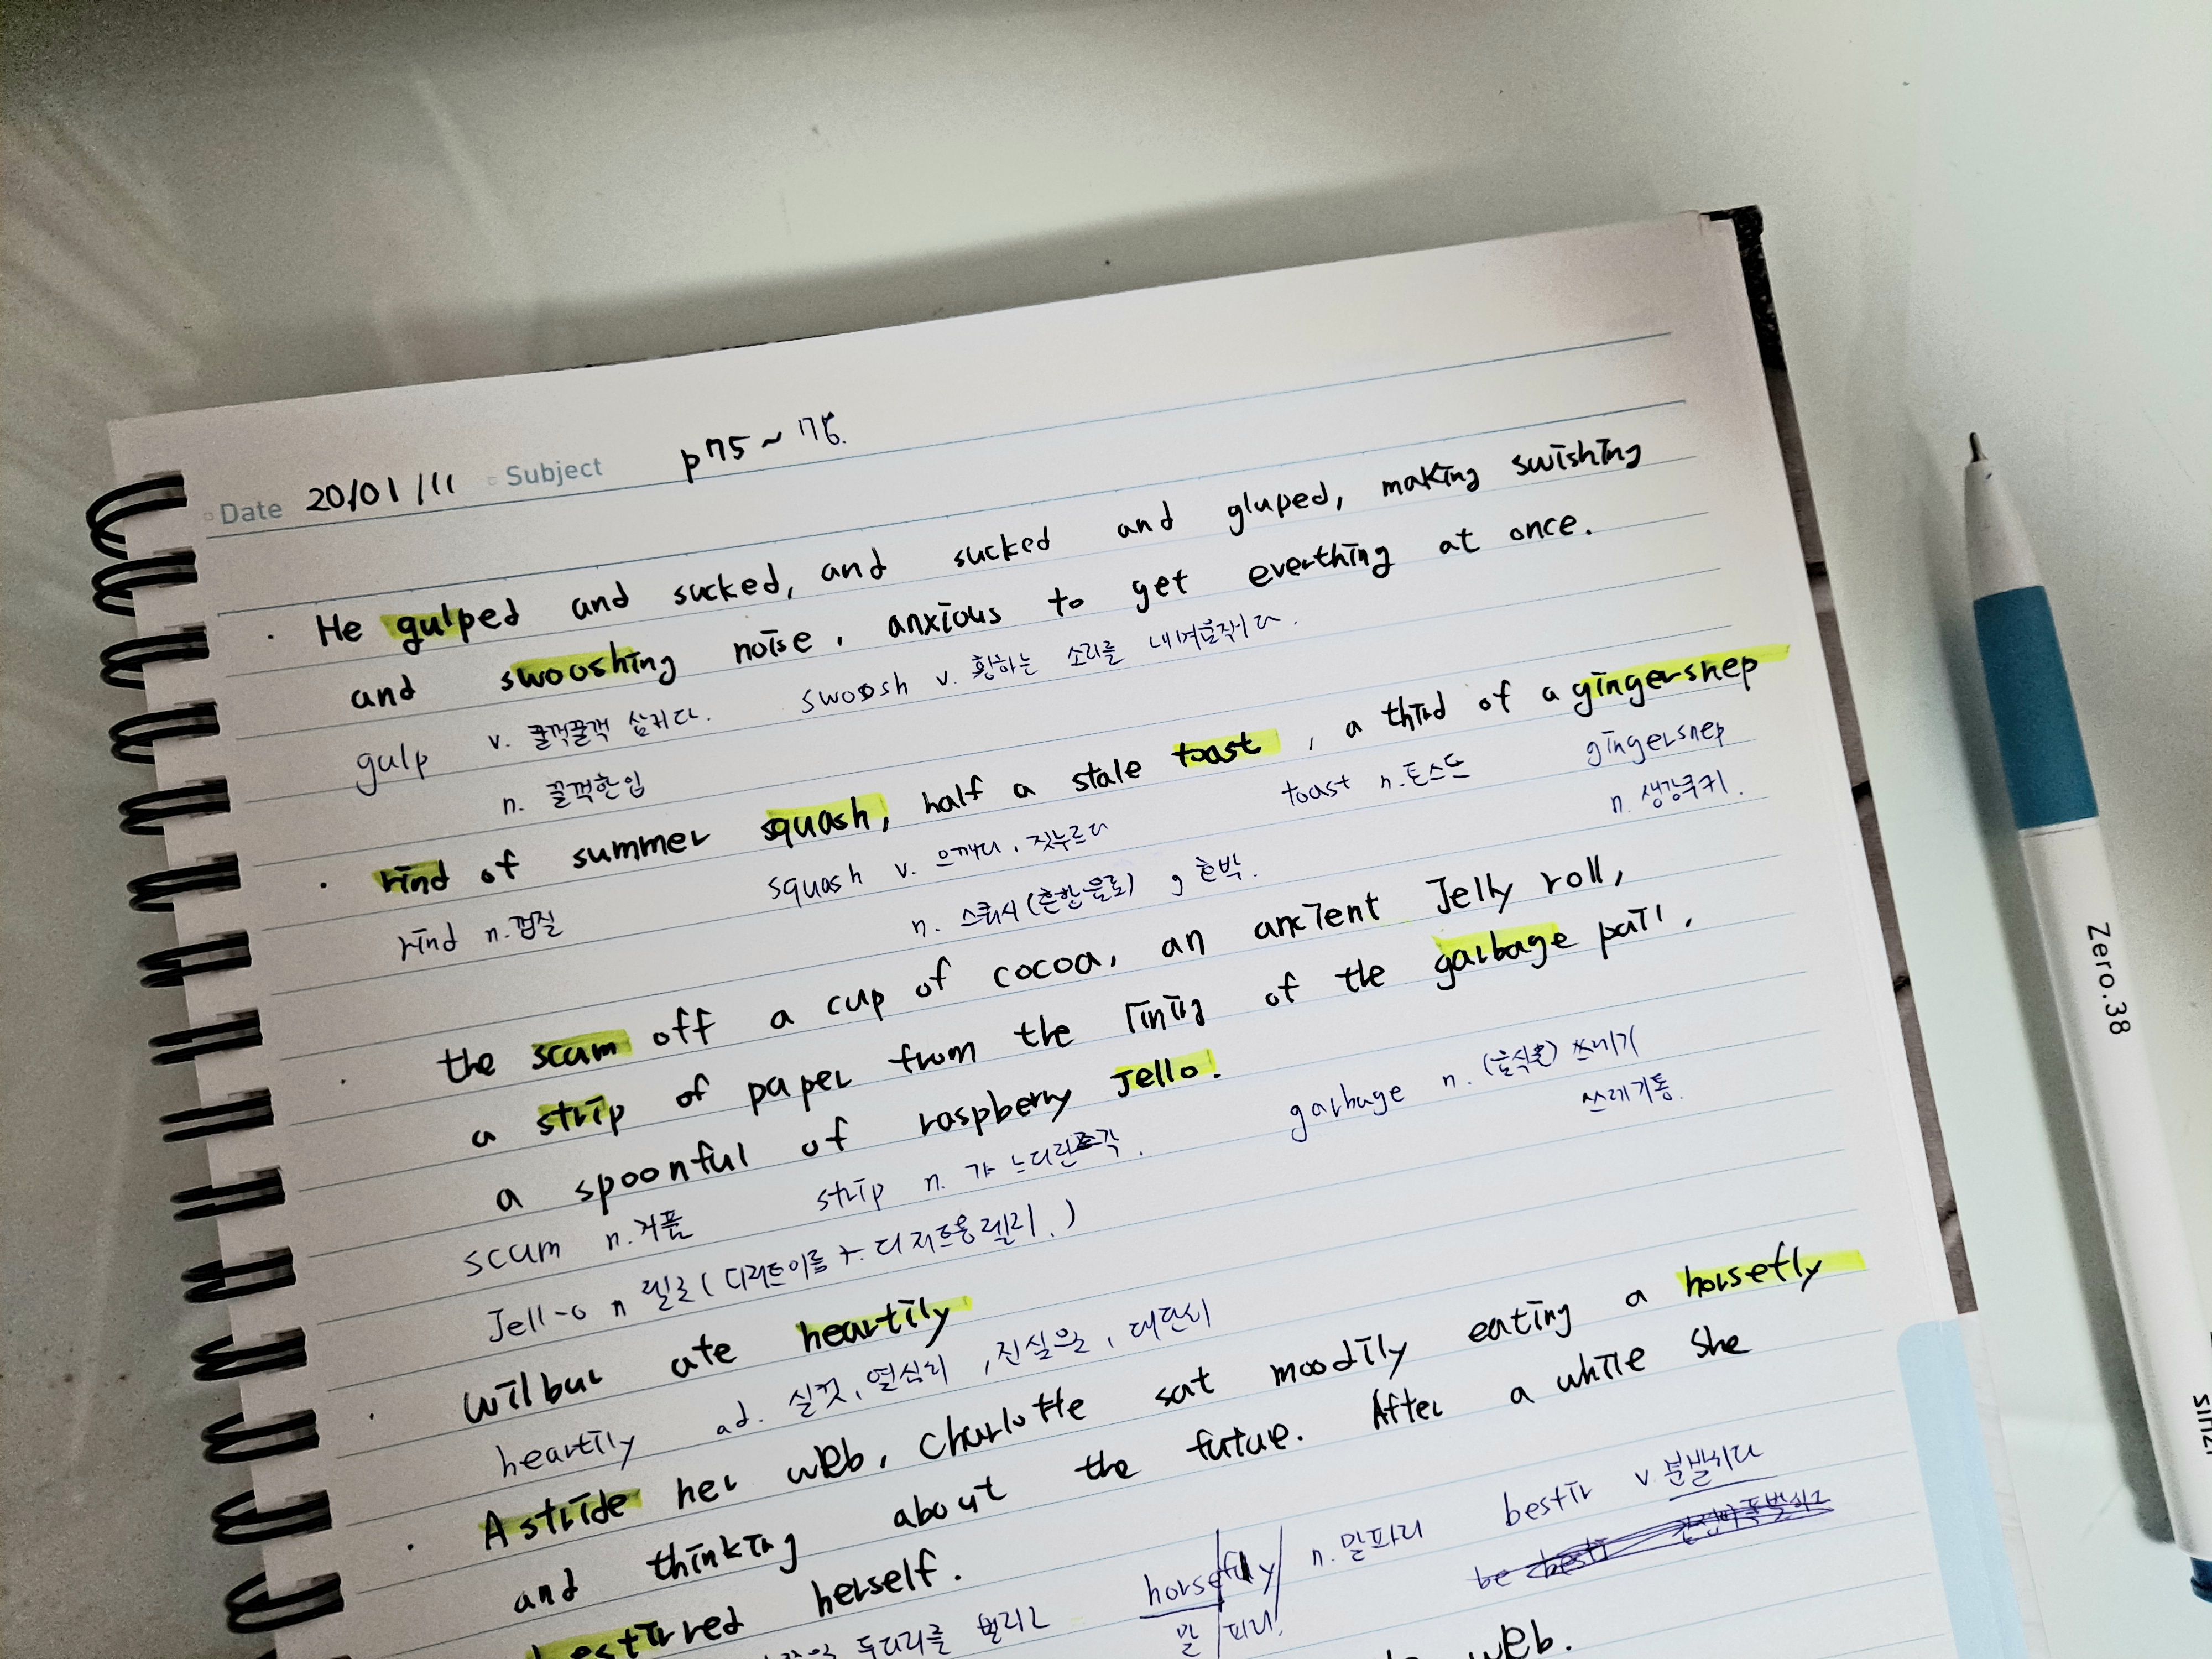 Date 20/01/11 Subject p75~76.
· He gulped and sucked, and sucked and gluped, making swishing
and swooshing noise, anxious to get everthing at once.
gulp v. 꿀꺽꿀꺽 삼키다. swoosh v. 휭하는 소리를 내며움직이다.
n. 꿀꺽한입
· rind of summer squash, half a stale toast, a third of a gingersnep
rind n. 껍질 squash v. 으깨다, 짓누르다 toast n. 토스트 gingersnep
n. 스쿼시(혼합음료), 호박. n. 생강쿠키.
· the scum off a cup of cocoa, an ancient Jelly roll,
a strip of paper from the lining of the garbage pail,
a spoonful of raspberry Jello.
scum n. 거품 strip n. 가느다란조각. garbage n. (음식물) 쓰레기
쓰레기통.
Jell-o n 젤로
· Wilbur ate heartily
heartily ad. 실컷, 열심히, 진실로, 대단히
· Astride her web, Charlotte sat moodily eating a horsefly
and thinking about the future. After a while she
bestirred herself.
horsefly n. 말파리 bestir v. 분발시키다
두다리를 벌리고 말 파리
web.
Zero.38